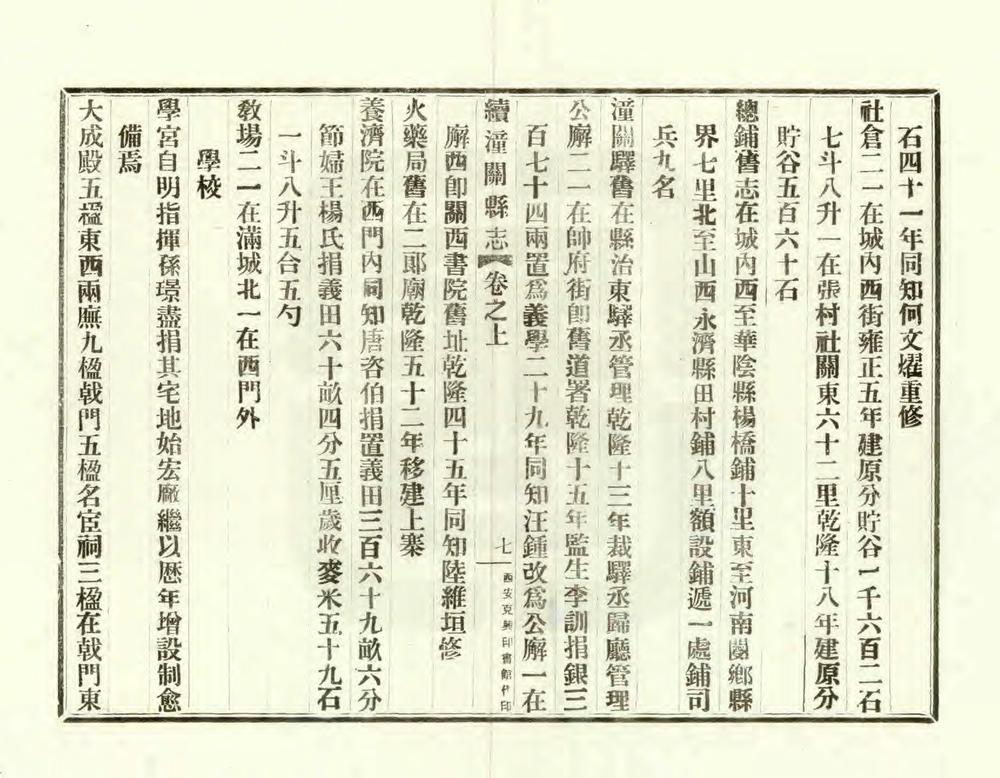 石四十一年同知何文燿重修
社倉二一在城內西街雍正五年建原分貯谷一千六百二石
七斗八升一在張村社關東六十二里乾隆十八年建原分
貯谷五百六十石
總鋪舊志在城內西至華陰縣楊橋鋪十里東至河南閿鄉縣
界七里北至山西永濟縣田村鋪八里額設鋪遞一處鋪司
兵九名
潼關驛舊在縣治東驛丞管理乾隆十三年裁驛丞歸廳管理
公廨二一在帥府街卽舊道署乾隆十五年監生李訓捐銀三
百七十四兩置爲義學二十九年同知汪鍾改爲公廨一在
續潼關縣志 卷之上
七 西安克興印書館代印
廨西卽關西書院舊址乾隆四十五年同知陸維垣修
火藥局舊在二郎廟乾隆五十二年移建上寨
養濟院在西門內同知唐咨伯捐置義田三百六十九畝六分
節婦王楊氏捐義田六十畝四分五厘歲收麥米五十九石
一斗八升五合五勺
敎場二一在滿城北一在西門外
學校
學宮自明指揮孫璟盡捐其宅地始宏廠繼以歷年增設制愈
備焉
大成殿五楹東西兩廡九楹戟門五楹名宦祠三楹在戟門東